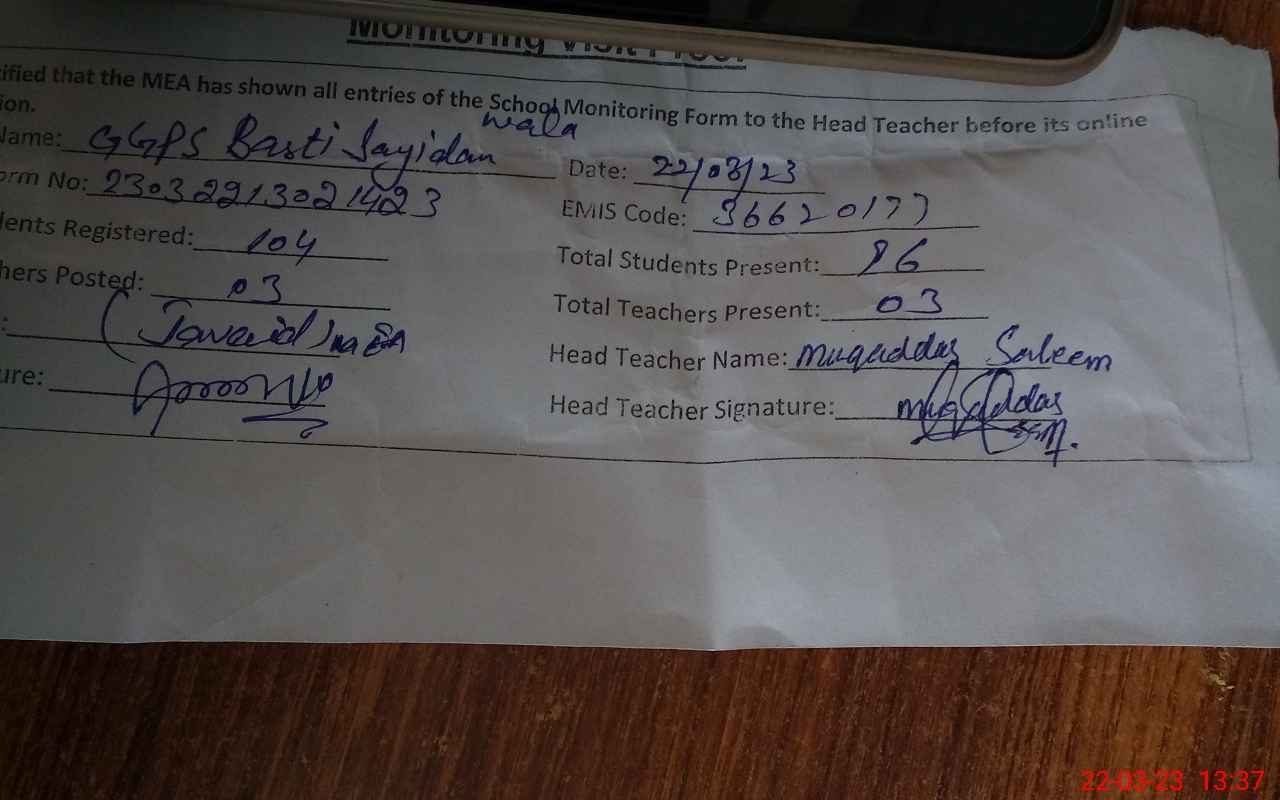 Monitoring Visit Proof
tified that the MEA has shown all entries of the School Monitoring Form to the Head Teacher before its online
ion.
Name: GGPS Basti Sayidan wala
Date: 22/03/23
orm No: 23032213021423
EMIS Code: 36620177
dents Registered: 104
Total Students Present: 86
hers Posted: 03
Total Teachers Present: 03
: (Javaid) MEA
Head Teacher Name: Muqaddas Saleem
ure:
Head Teacher Signature: Muqaddas
22-03-23 13:37